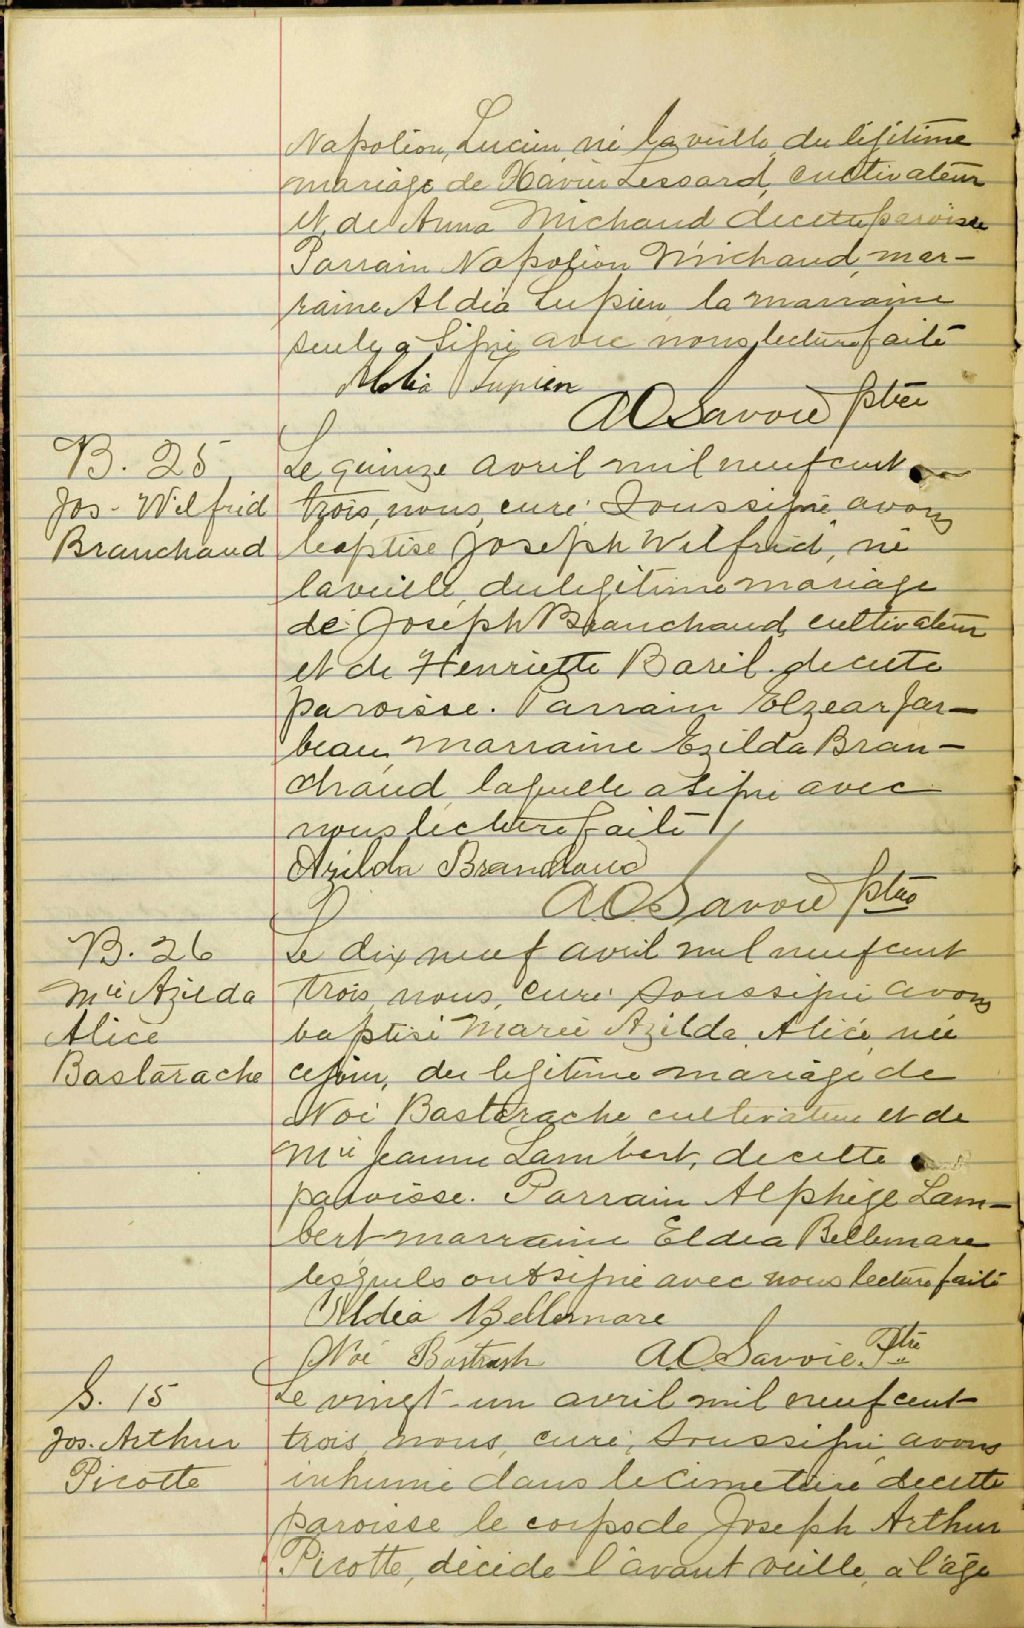 Napoléon, Lucien, né la veille, du légitime
mariage de Xavier Lessard, cultivateur
et de Anna Michaud de cette paroisse
Parrain Napoléon Michaud, mar-
raine Aldéa Lupien, la marraine
seule a signé avec nous, lecture faite
Aldéa Lupien
AOSavoie ptre
B. 25
Jos- Wilfrid
Branchaud
Le quinze avril mil neuf cent
trois, nous, curé soussigné avons
baptisé Joseph Wilfrid, né
la veille, du légitime mariage
de Joseph Branchaud, cultivateur
et de Henriette Baril de cette
paroisse. Parrain Elzear Jar-
beau, marraine Ezilda Bran-
chaud, laquelle a signé avec
nous lecture faite
Azilda Branchaud
AOSavoie ptre
B. 26
Mie Azilda
Alice
Bastarache
Le dix neuf avril mil neuf cent
trois, nous, curé soussigné avons
baptisé Marie Azilda Alice, née
ce jour, du légitime mariage de
Noé Bastarache, cultivateur et de
Mie Jeanne Lambert, de cette
paroisse. Parrain Alphège Lam-
bert marraine Eldéa Bellemare
lesquels ont signé avec nous lecture faite
Aldéa Bellemare
Noé Bastrash A.O.Savoie Ptre
S. 15
Jos. Arthur
Picotte
Le vingt-un avril mil neuf cent
trois, nous, curé, soussigné, avons
inhumé dans le cimetière de cette
paroisse le corps de Joseph Arthur
Picotte, décédé l'avant veille, à l'âge